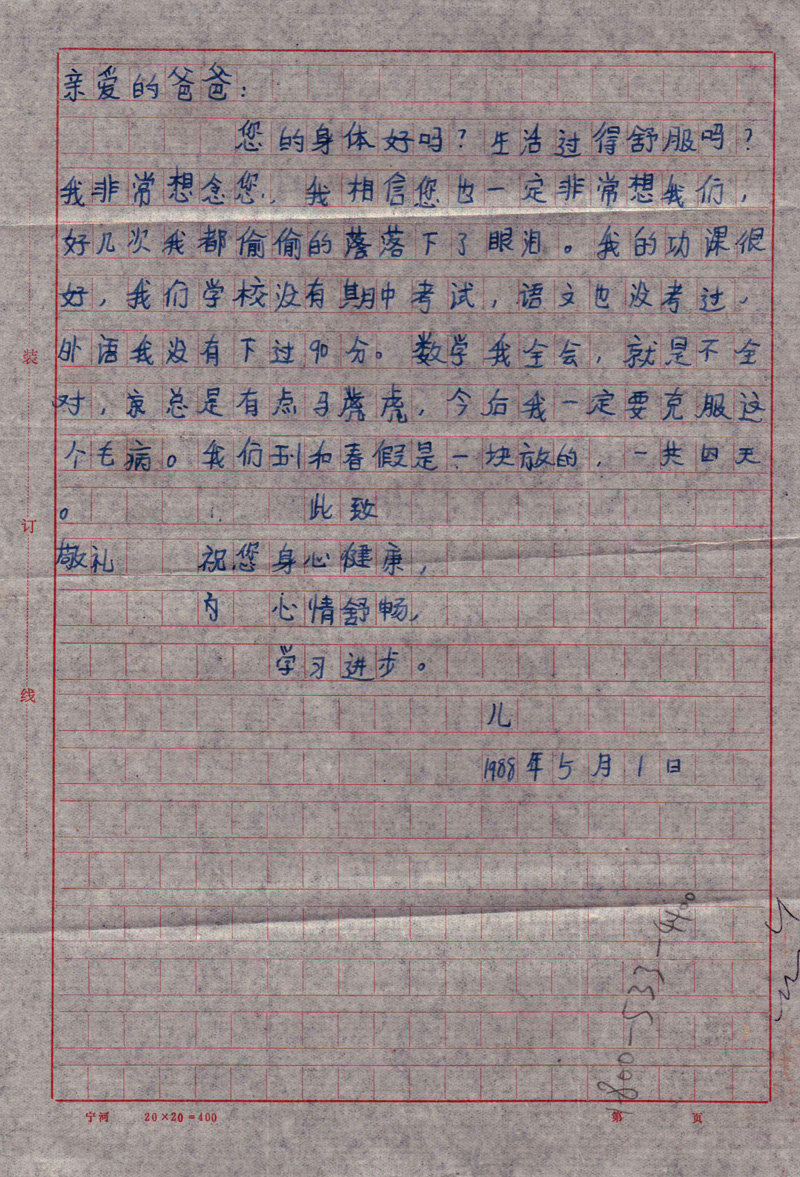 亲爱的爸爸：
您的身体好吗？生活过得舒服吗？
我非常想念您，我相信您也一定非常想我们，
好几次我都偷偷的落落下了眼泪。我的功课很
好，我们学校没有期中考试，语文也没考过，
外语我没有下过90分。数学我全会，就是不全
对，总是有点马虎，今后我一定要克服这
个毛病。我们和春假是一块放的，一共四天
。 此致
敬礼 祝您身心健康，
内 心情舒畅，
学习进步。
儿
1988年5月1日
装
订
线
1-800-533-4400
宁河 20×20=400 第 页